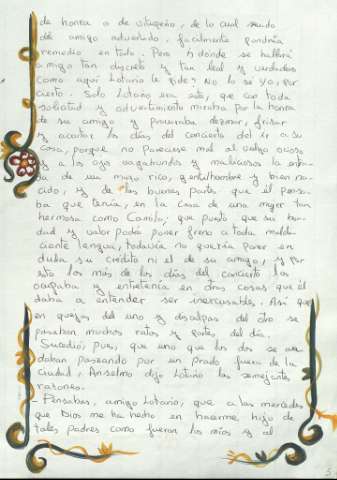 de honra o de vituperio, de lo cual siendo
del amigo advertido, fácilmente pondría
remedio en todo. Pero ¿dónde se hallará
amigo tan discreto y tan leal y verdadero
como aquí Lotario le pide? No lo sé yo, por
cierto. Solo Lotario era este, que con toda
solicitud y advertimiento miraba por la honra
de su amigo y procuraba dezmar, frisar
y acortar los días del concierto del ir a su
casa, porque no pareciese mal al vulgo ocioso
y a los ojos vagabundos y maliciosos la entra-
da de un mozo rico, gentilhombre y bien na-
cido, y de las buenas partes que él pensa-
ba que tenía, en la casa de una mujer tan
hermosa como Camila; que puesto que su bon-
dad y valor podía poner freno a toda maldi-
ciente lengua, todavía no quería poner en
duda su crédito ni el de su amigo, y por
esto los más de los días del concierto los
ocupaba y entretenía en otras cosas que él
daba a entender ser inexcusables. Así que
en quejas del uno y disculpas del otro se
pasaban muchos ratos y partes del día.
Sucedió, pues, que uno que los dos se an-
daban paseando por un prado fuera de la
ciudad, Anselmo dijo Lotario las semejantes
razones.
- Pensabas, amigo Lotario, que a las mercedes
que Dios me ha hecho en hacerme hijo de
tales padres como fueron los míos y al